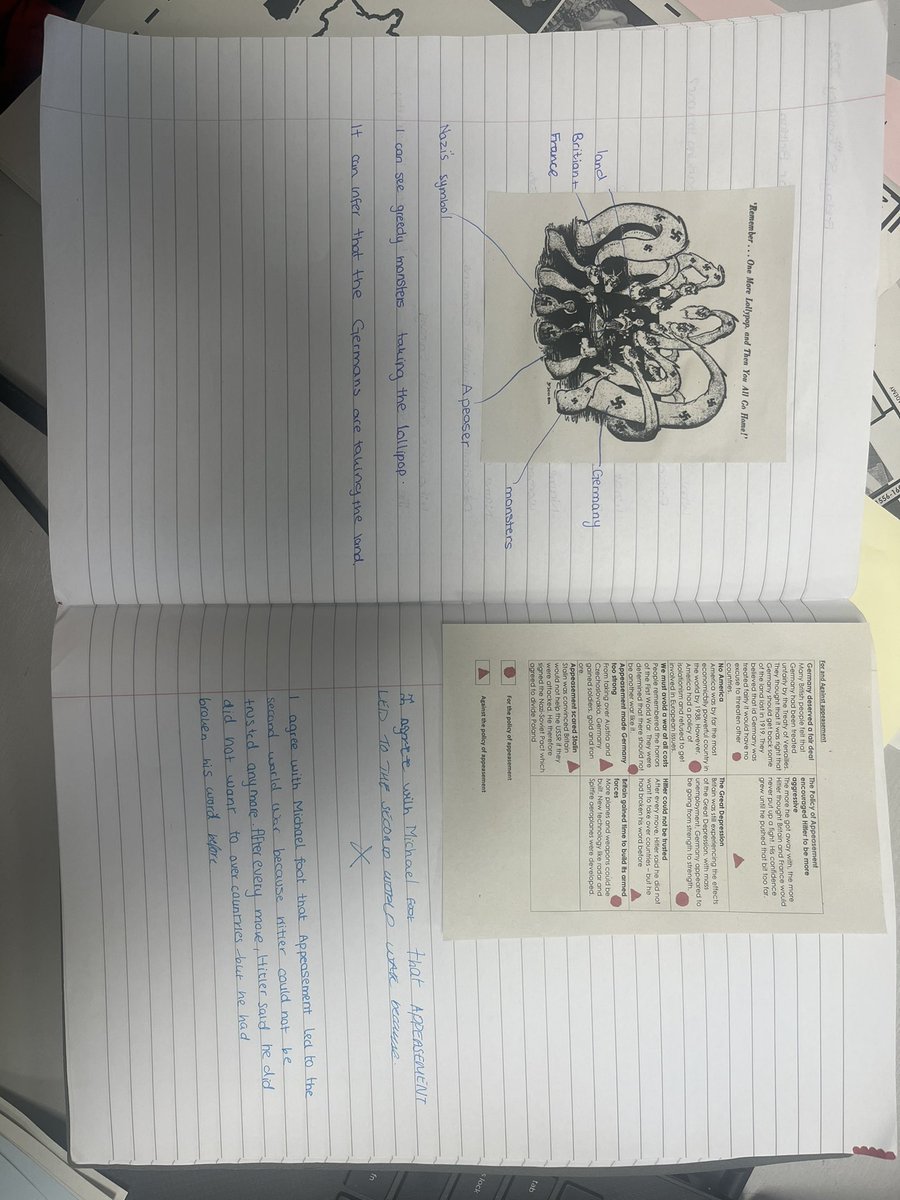 'Remember . . . One More Lollypop, and Then You All Go Home!'
land
Britian +
France
Germany
monsters
Apeaser
Nazi's symbol
I can see greedy monsters taking the lollipop.
It can infer that the Germans are taking the land.
For and Against appeasement
Germany deserved a fair deal
Many British people felt that
Germany had been treated
unfairly by the Treaty of Versailles.
They thought that it was right that
Germany should get back some
of the land lost in 1919. They
believed that if Germany was
treated fairly it would have no
excuse to threaten other
countries.
No America
America was by far the most
economically powerful country in
the world by 1938. However,
America had a policy of
isolationism and refused to get
involved in European issues.
We must avoid a war at all costs
People remembered the horrors
of the First World War. They were
determined that there should not
be another war like it.
Appeasement made Germany
too strong
From taking over Austria and
Czechoslovakia, Germany
gained soldiers, gold and iron
ore.
Appeasement scared Stalin
Stalin was convinced Britain
would not help the USSR if they
were attacked. He therefore
signed the Nazi-Soviet Pact which
agreed to divide Poland
The Policy of Appeasement
encouraged Hitler to be more
aggressive
The more he got away with, the more
Hitler thought Britain and France would
never put up a fight. His confidence
grew until he pushed that bit too far.
The Great Depression
Britain was still experiencing the effects
of the Great Depression, with mass
unemployment. Germany appeared to
be going from strength to strength.
Hitler could not be trusted
After every move, Hitler said he did not
want to take over countries – but he
had broken his word before
Britain gained time to build its armed
forces
More planes and weapons could be
built. New technology like radar and
Spitfire aeroplanes were developed.
For the policy of appeasement
Against the policy of appeasement
I agree with Michael foot that APPEASEMENT
LED TO THE SECOND WORLD WAR because
I agree with Michael foot that Appeasement led to the
second world war because Hitler could not be
trusted anymore. After every move, Hitler said he did
did not want to over countries - but he had
broken his word before.
1556-16